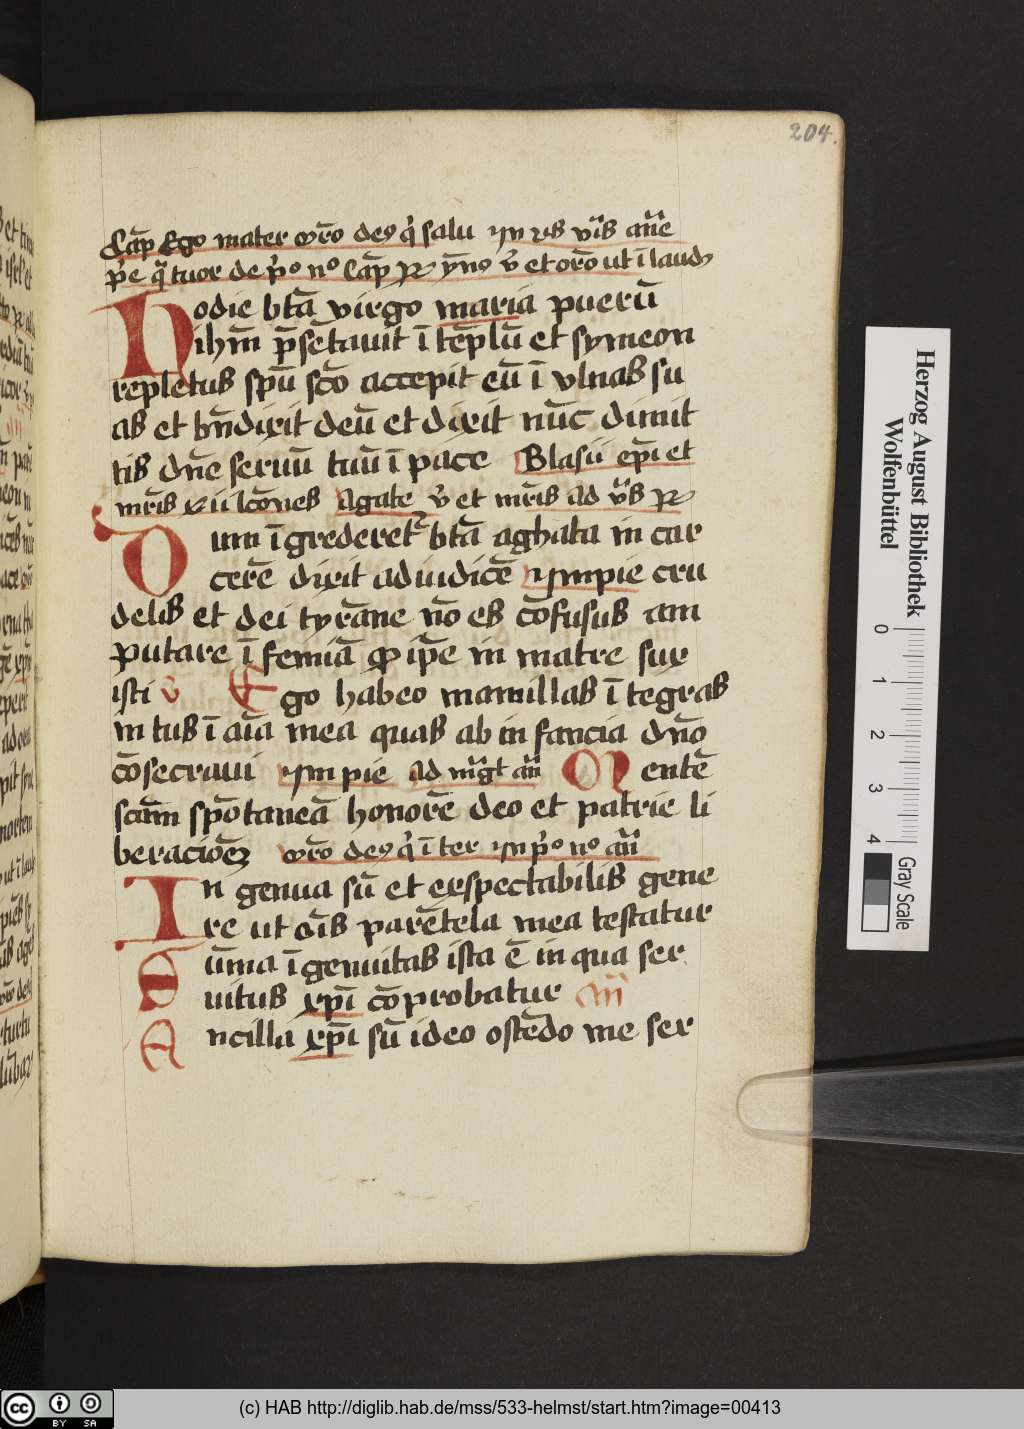 204.
Cap̄ Ego mater or̄o deꝰ q̇ salu Jn vꝰ vīs an̄e
p̄e q̄ tuor de p̊ n̊ Cap̄ R yn̄o v̄ et or̄o ut ī laud
Hodie btā virgo maria puerū
ihm̄ p̄setauit ī tēplū et symeon
repletus spū scō accepit eū ī vlnas su
as et bn̄dixit deū et dixit nūc dimit
tis dn̄e seruū tuū ī pace Blasii ep̄i et
mr̄is lc̄ones Agate v̄ et mr̄is ad vs̄ R
Dum īgrederet᷑ btā aghata in car
cerē dixit ad iudicē Jmpie cru
delis et dei tyrāne nō es cōfusus am
putare ī femiā qͦ ip̄e in matre sux
isti v Ego habeo mamillas ī tegras
in tus ī aīa mea quas ab in fancia dn̄o
cōsecraui Jm pie Ad mgt an̄ Mentē
scam̄ spōtaneā honorē deo et patrie li
beracioēꝫ or̄o deꝰ q̇ ī ter Jn p̊ n̊ an̄
In genua sū et exspectabilis gene
re ut oīs parētela mea testatur
Sūma īgenuitas ista ē in qua ser
uitus xp̄i cōprobatur An̄
Ancilla xp̄i sū ideo ostēdo me ser
Herzog August Bibliothek
Wolfenbüttel
0 1 2 3 4
Gray Scale
cc BY SA
(c) HAB http://diglib.hab.de/mss/533-helmst/start.htm?image=00413